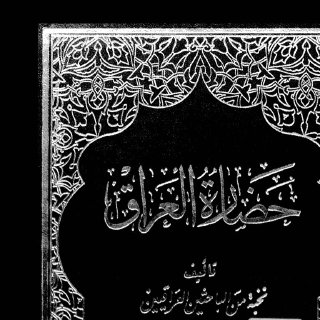 حضارة العراق
تأليف
نخبة من الباحثين العراقيين